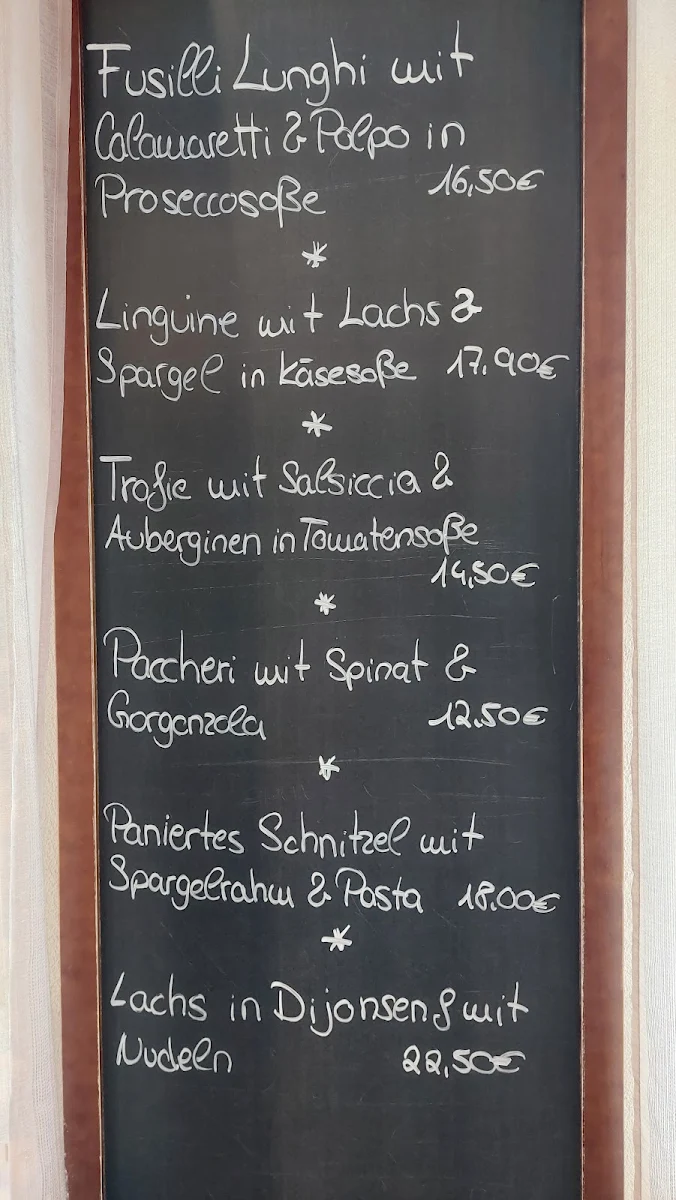 Fusilli Lunghi mit
Calamaretti & Polpo in
Proseccosoße 16,50€
*
Linguine mit Lachs &
Spargel in Käsesoße 17,90€
*
Trofie mit Salsiccia &
Auberginen in Tomatensoße
14,50€
*
Paccheri mit Spinat &
Gorgonzola 12,50€
*
Paniertes Schnitzel mit
Spargelrahm & Pasta 18,00€
*
Lachs in Dijonsenf mit
Nudeln 22,50€